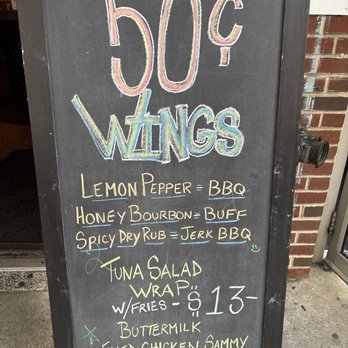 50¢
WINGS
LEMON PEPPER = BBQ
HONEY BOURBON = BUFF
SPICY DRY RUB = JERK BBQ
TUNA SALAD
WRAP
W/FRIES - $13-
BUTTERMILK
FRIED CHICKEN SAMMY